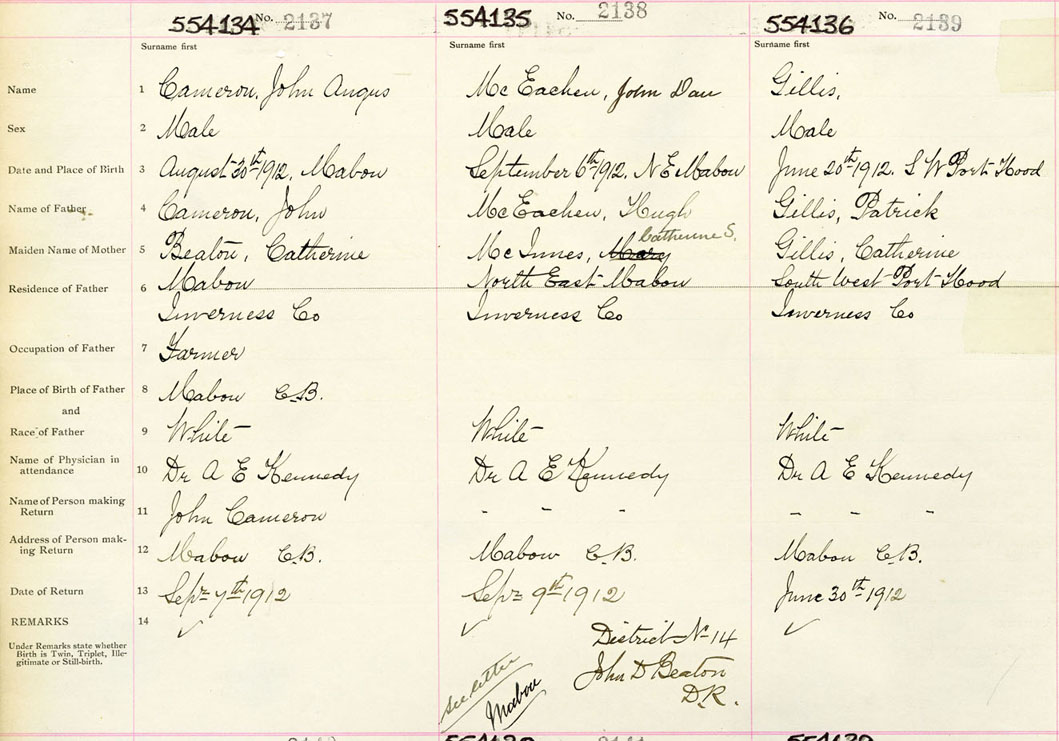 554134 No. 2137 554135 No. 2138 554136 No. 2139
Surname first Surname first Surname first
Name 1 Cameron, John Angus Mc Eachen, John Dan Gillis,
Sex 2 Male Male Male
Date and Place of Birth 3 August 30th 1912, Mabou September 6th 1912, N E Mabou June 20th 1912. S W Port Hood
Name of Father 4 Cameron, John McEachen, Hugh Gillis, Patrick
Catherine S.
Maiden Name of Mother 5 Beaton, Catherine McInnes, Mary Gillis, Catherine
Residence of Father 6 Mabou North East Mabou South West Port Hood
Inverness Co Inverness Co Inverness Co
Occupation of Father 7 Farmer
Place of Birth of Father 8 Mabou C.B.
and
Race of Father 9 White White White
Name of Physician in
attendance 10 Dr A E Kennedy Dr A E Kennedy Dr A E Kennedy
Name of Person making
Return 11 John Cameron - - - - - -
Address of Person mak-
ing Return 12 Mabou C.B. Mabou C.B. Mabou C.B.
Date of Return 13 Sept 7th 1912 Sept 9th 1912 June 30th 1912
REMARKS 14 ✓ ✓ ✓
Under Remarks state whether
Birth is Twin, Triplet, Ille-
gitimate or Still-birth.
District No 14
John D Beaton
D.R.
see letter
Mabou